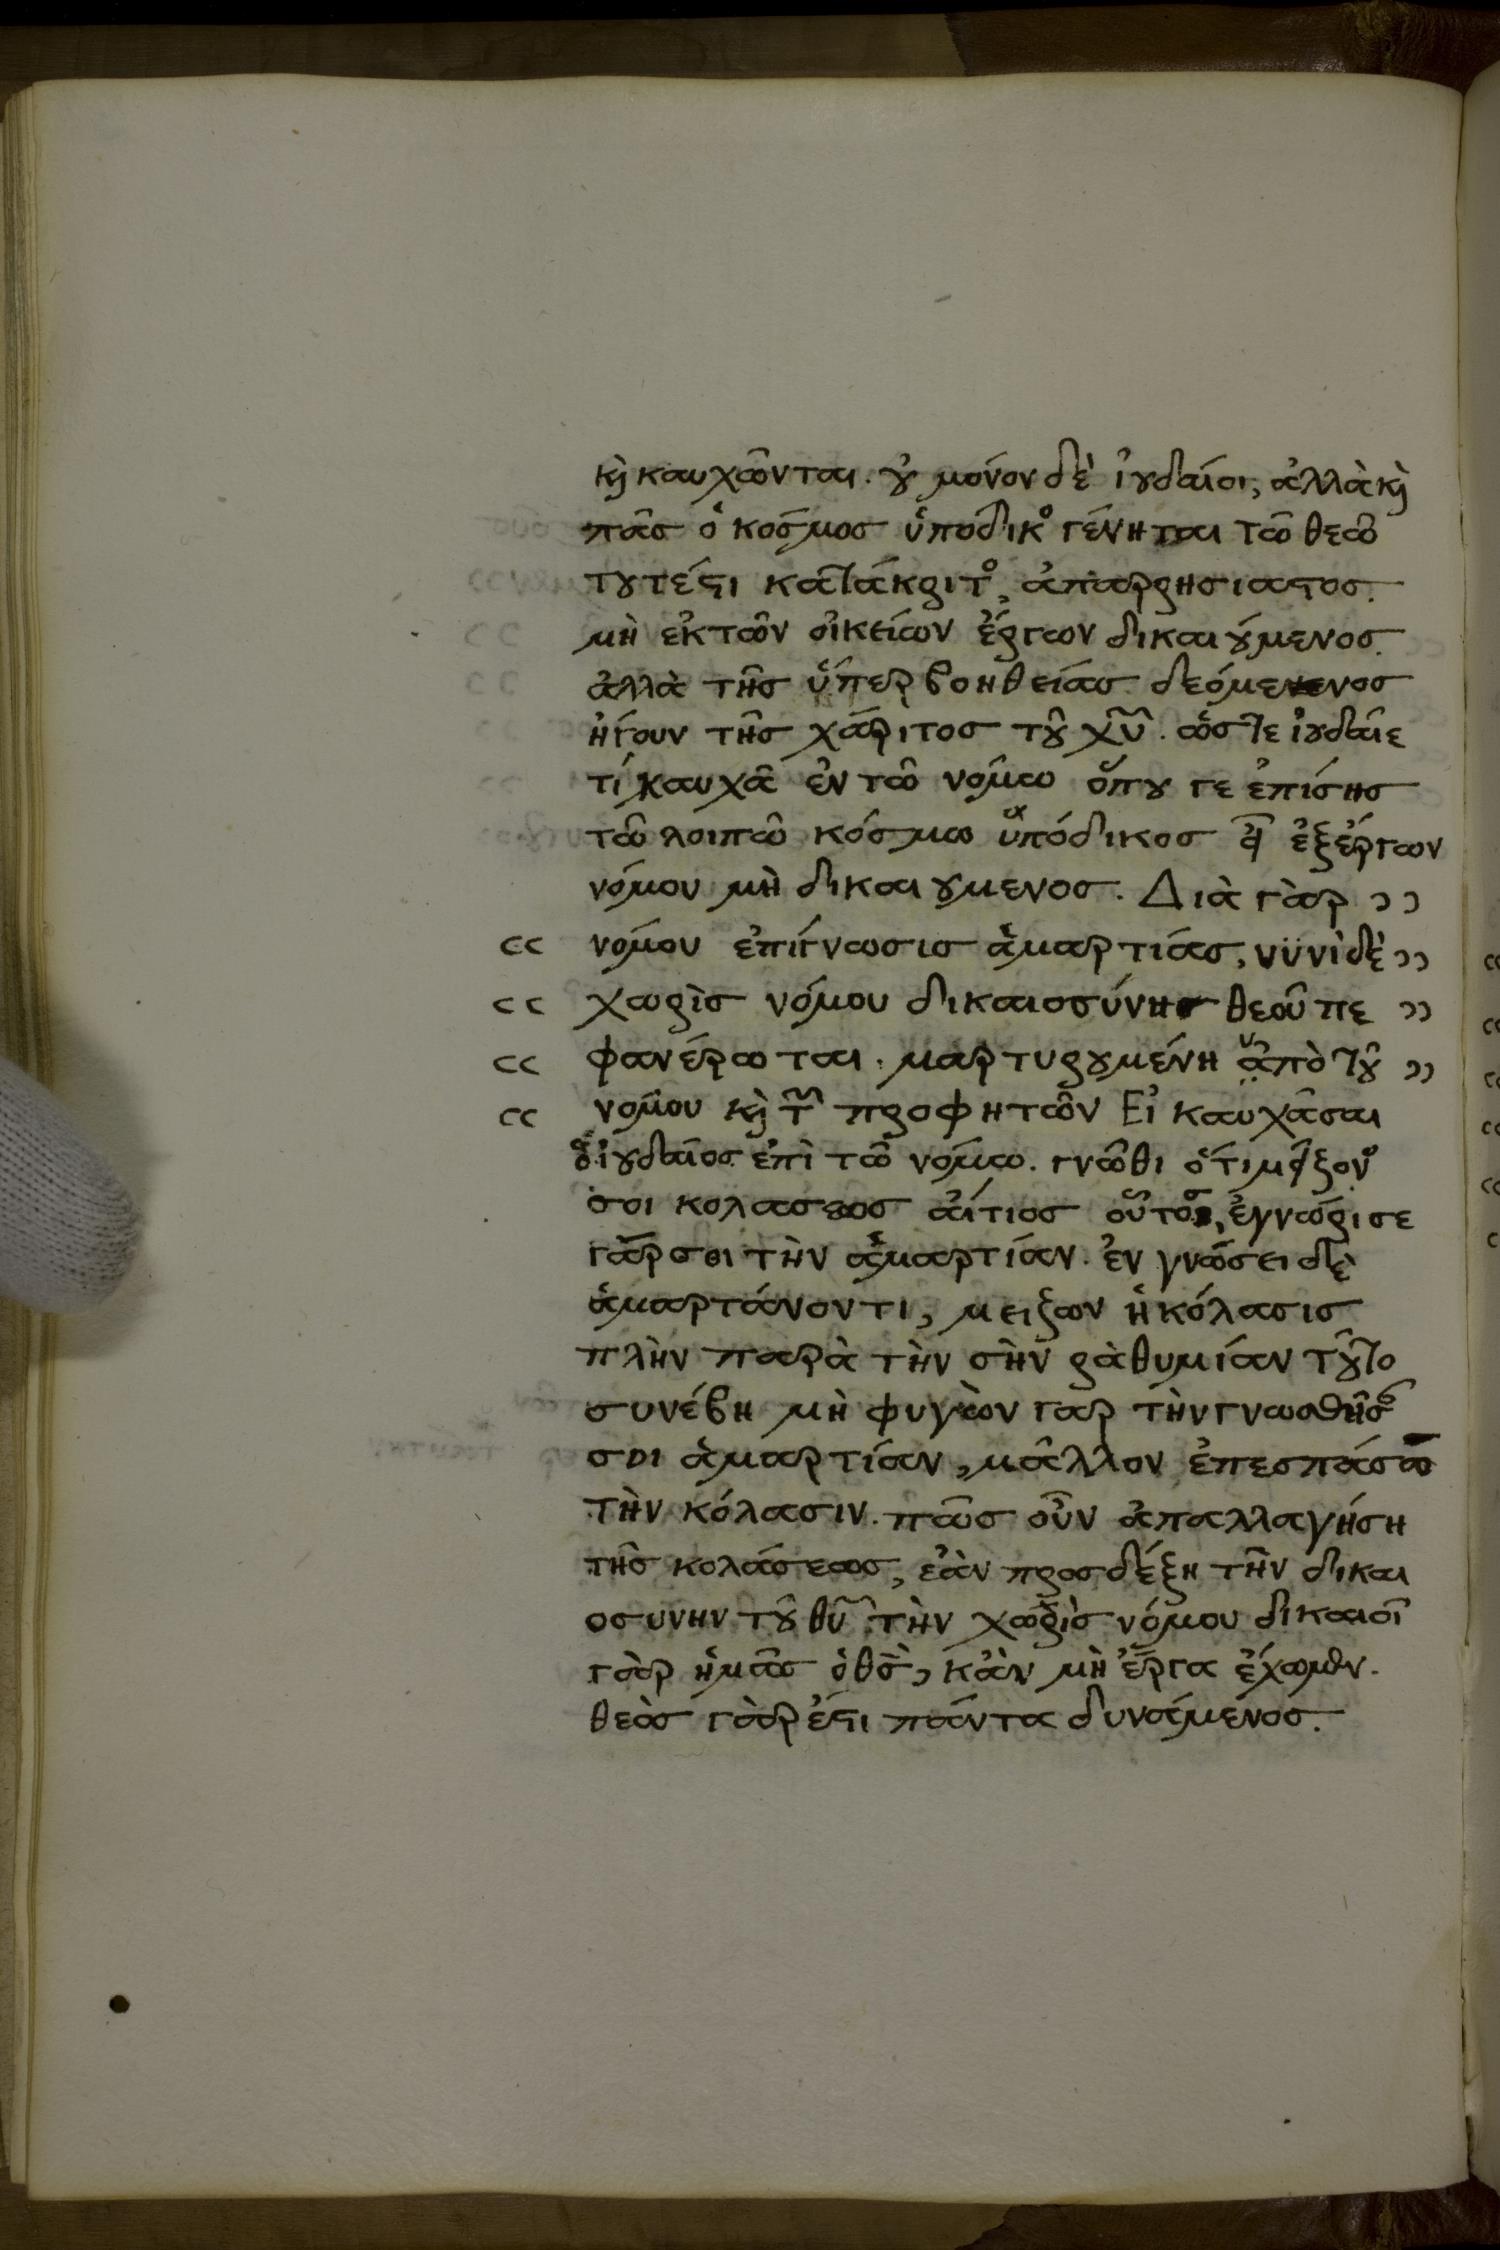 κ̀ καυχῶνται. οὐ μόνον δὲ ἰουδαίοι, ἀλλὰ κ̀
πᾶς ὁ κόσμος ὑπόδικος γένηται τῶ θεῶ
τουτέστι κατάκριτος, ἀπαρρησιαστος.
μὴ ἐκ τῶν οἰκείων ἔργων δικαιούμενος.
ἀλλὰ τῆς ὑπερ βοηθείας δεόμενενος
ἤγουν τῆς χάριτος τοῦ χῦ. ὥστε ἰουδαῖε
τί καυχᾶ ἐν τῶ νόμω ὅπου γε ἐπίσης
τῶ λοιπῶ κόσμω ὑπόδικος ἐξ ἔργων
νόμου μὴ δικαιουμενος. Διὰ γὰρ ))
(( νόμου ἐπίγνωσις ἁμαρτίας, νϋνὶ δὲ ))
(( χωρὶς νόμου δικαιοσύνης θεοῦ πε ))
(( φανέρωται. μαρτυρουμένη ἀπὸ τοῦ ))
(( νόμου κ̀ τῶν προφητῶν Εἰ καυχᾶσαι
ὁ ἰουδαῖος ἐπὶ τῶ νόμω. γνῶθι ὅτι μείζονος
σοι κολασεως αἴτιος οὗτος, ἐγνώρισε
γάρ σοι τὴν ἁμαρτίαν. ἐν γνώσει δὲ
ἁμαρτάνοντι, μειζων ἡ κόλασις
πλὴν παρὰ τὴν σὴν ρὰθυμίαν τοῦτο
συνέβη μὴ φυγὼν γαρ τὴν γνωσθεῖσαν
σοι ἁμαρτίαν, μᾶλλον ἐπεσπάσω
τὴν κόλασιν. πῶς οὖν ἀπαλλαγήση
τῆς κολάσεως, ἐὰν προσδέξη τὴν δικαι
οσυνην τοῦ θῦ τὴν χωρὶς νόμου δικαιοῖ
γὰρ ἡμᾶς ὁ θς̀, κἂν μὴ ἔργα ἔχωμεν.
θεὸς γὰρ ἐστι πάντα δυνάμενος.